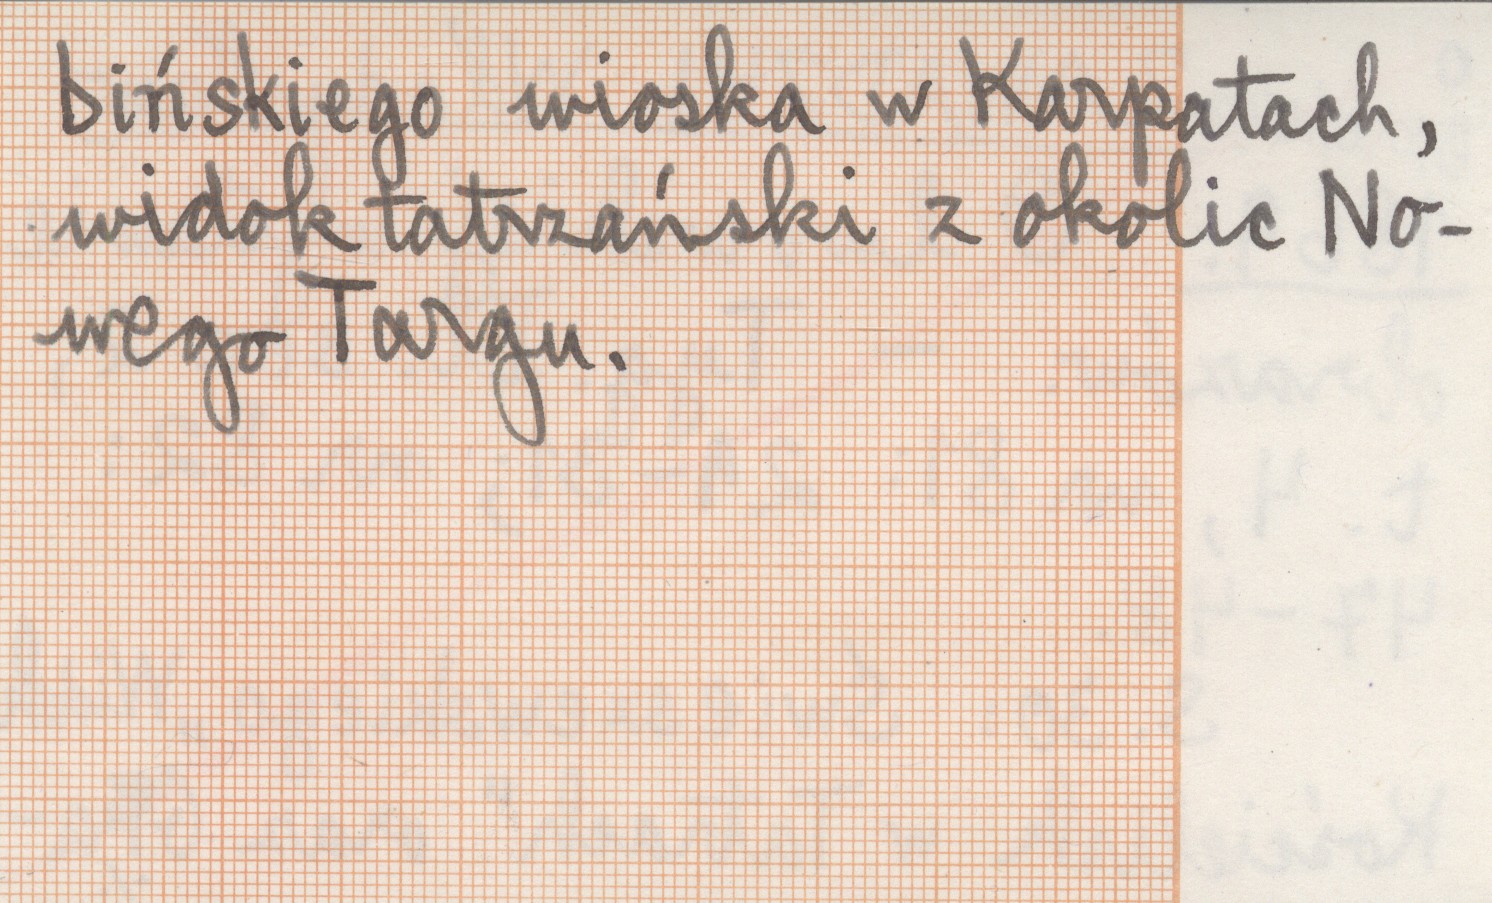 bińskiego wioska w Karpatach,
widok tatrzański z okolic No-
wego Targu.